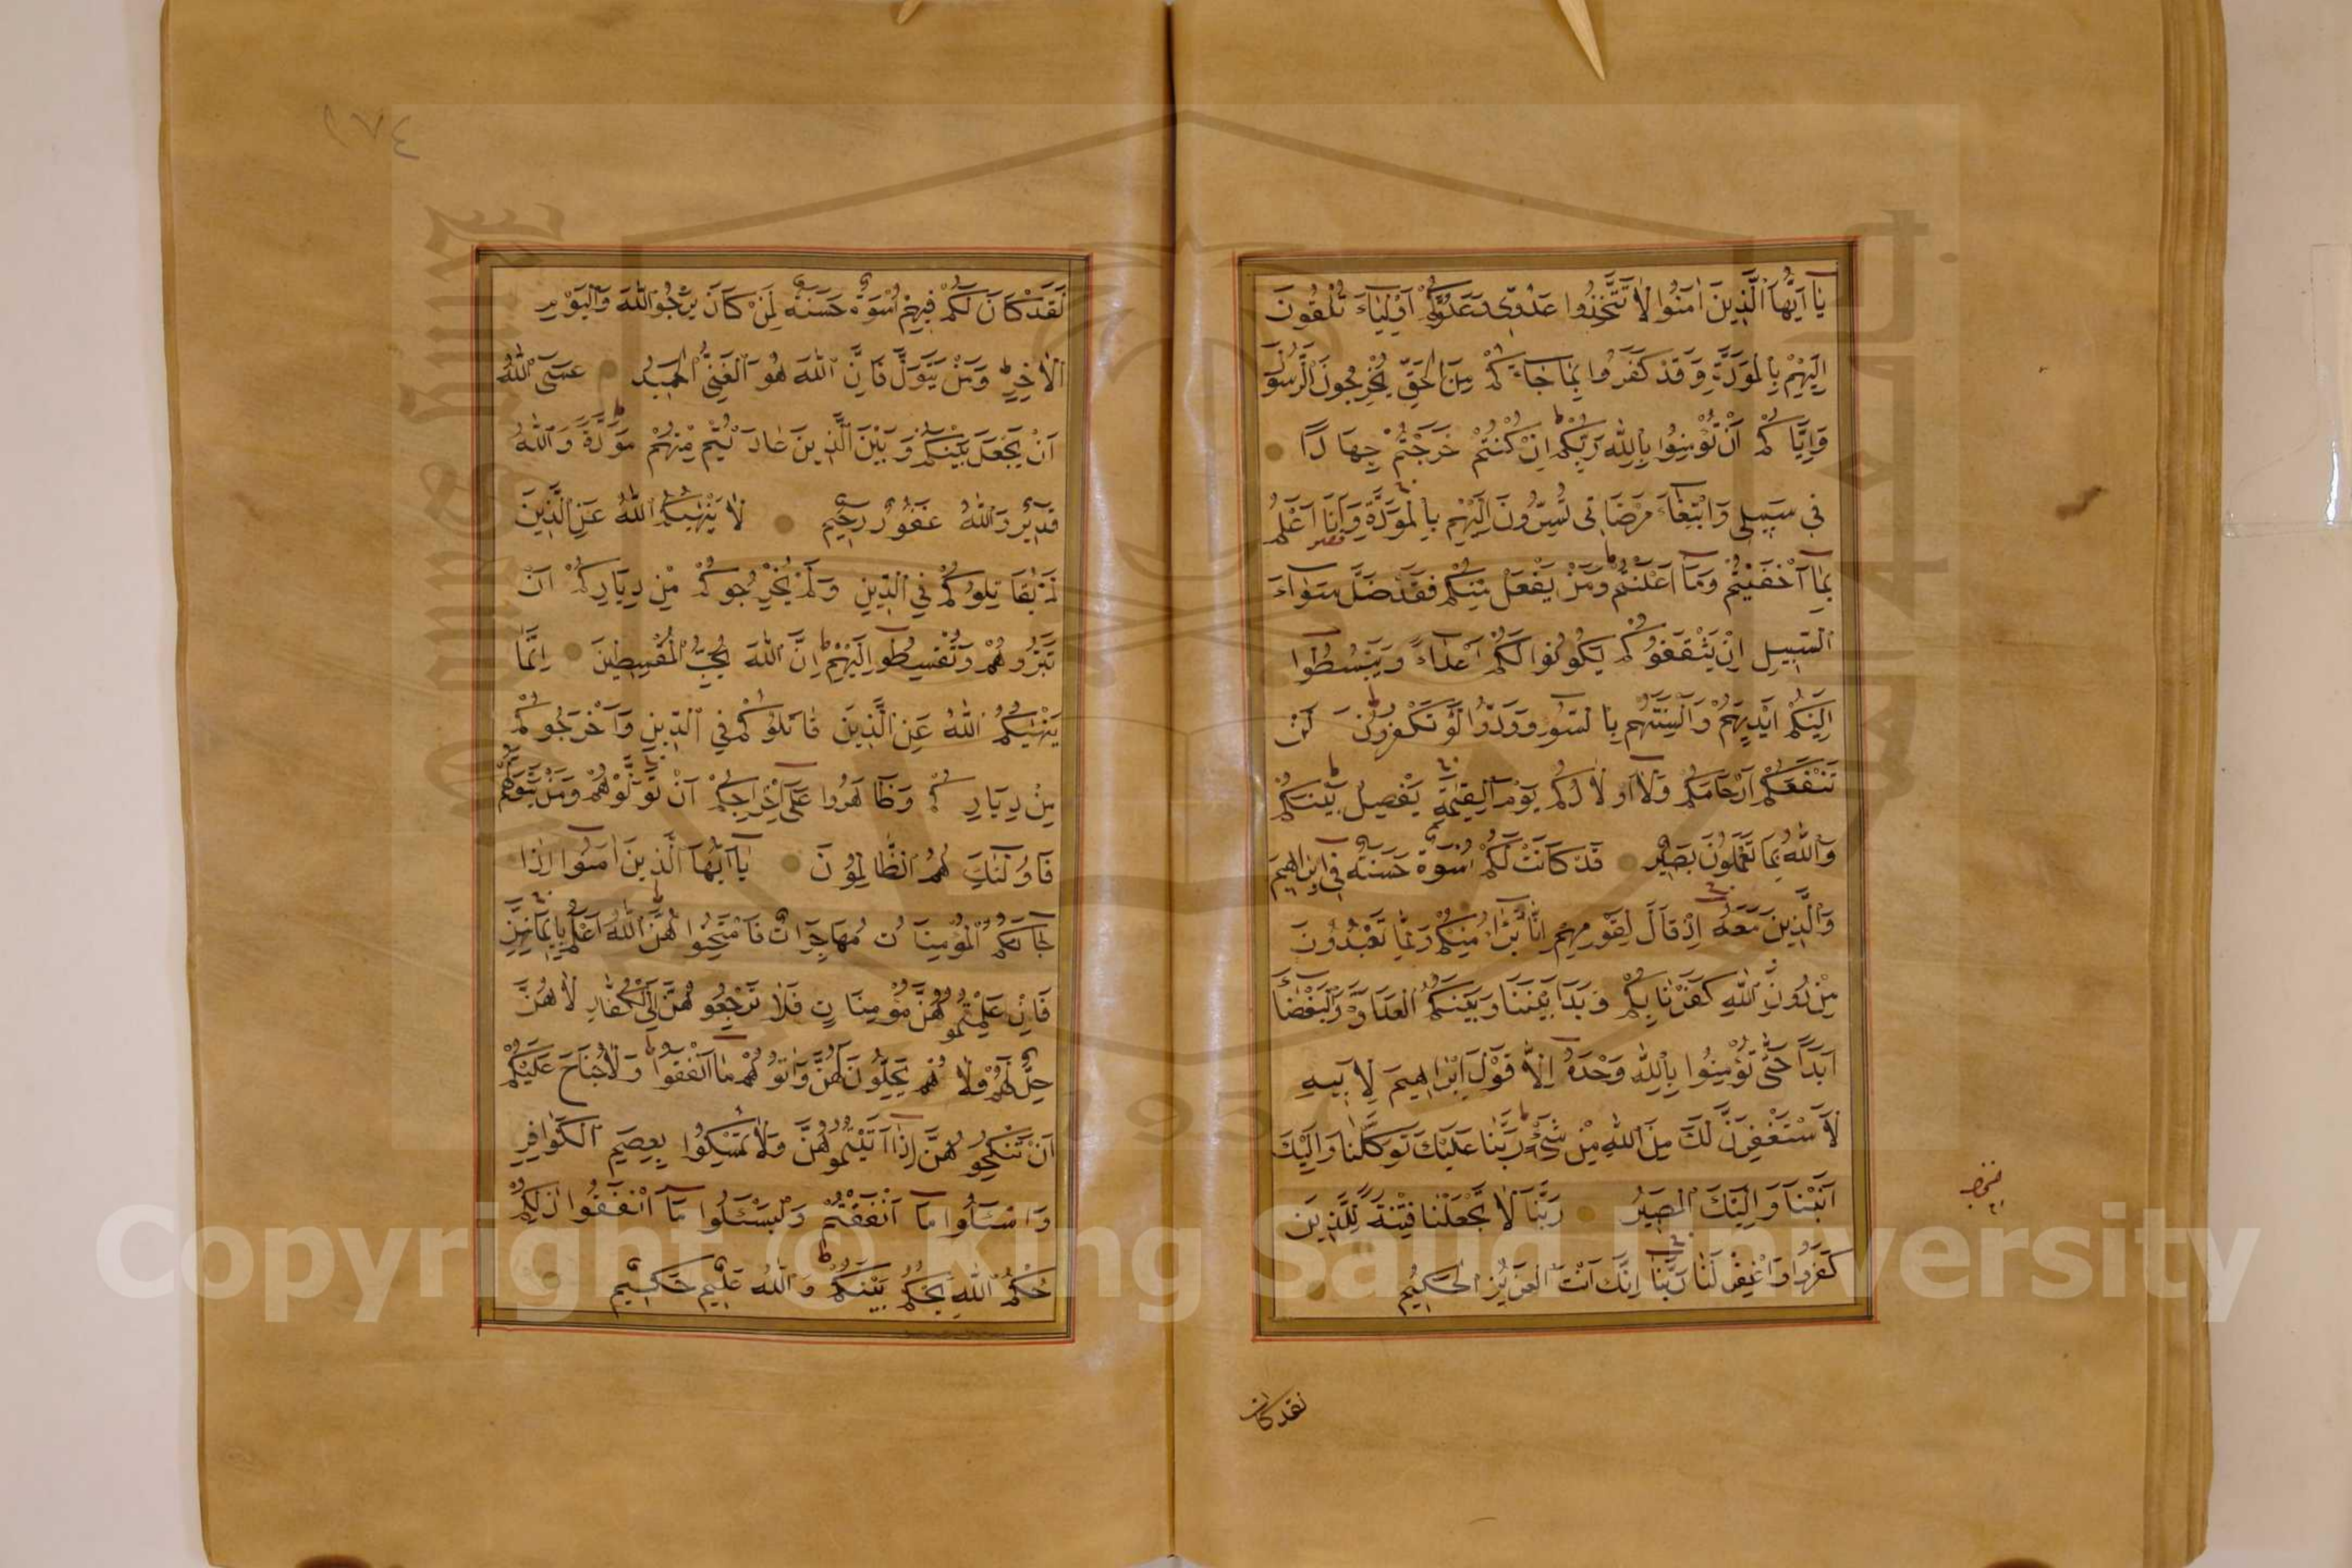 يَا اَيُّهَا الَّذِينَ اٰمَنُوا لَا تَتَّخِذُوا عَدُوِّى وَعَدُوَّكُمْ اَوْلِيَاءَ تُلْقُونَ
اِلَيْهِمْ بِالْمَوَدَّةِ وَقَدْ كَفَرُوا بِمَا جَاءَكُمْ مِنَ الْحَقِّ يُخْرِجُونَ الرَّسُولَ
وَاِيَّاكُمْ اَنْ تُؤْمِنُوا بِاللّٰهِ رَبِّكُمْ اِنْ كُنْتُمْ خَرَجْتُمْ جِهَادًا
فِى سَبِيلِى وَابْتِغَاءَ مَرْضَاتِى تُسِرُّونَ اِلَيْهِمْ بِالْمَوَدَّةِ وَاَنَا اَعْلَمُ
بِمَا اَخْفَيْتُمْ وَمَا اَعْلَنْتُمْ وَمَنْ يَفْعَلْهُ مِنْكُمْ فَقَدْ ضَلَّ سَوَاءَ
السَّبِيلِ اِنْ يَثْقَفُوكُمْ يَكُونُوا لَكُمْ اَعْدَاءً وَيَبْسُطُوا
اِلَيْكُمْ اَيْدِيَهُمْ وَاَلْسِنَتَهُمْ بِالسُّوءِ وَوَدُّوا لَوْ تَكْفُرُونَ لَنْ
تَنْفَعَكُمْ اَرْحَامُكُمْ وَلَا اَوْلَادُكُمْ يَوْمَ الْقِيٰمَةِ يَفْصِلُ بَيْنَكُمْ
وَاللّٰهُ بِمَا تَعْمَلُونَ بَصِيرٌ قَدْ كَانَتْ لَكُمْ اُسْوَةٌ حَسَنَةٌ فِى اِبْرَاهِيمَ
وَالَّذِينَ مَعَهُ اِذْ قَالَ لِقَوْمِهِمْ اِنَّا بُرَءٰؤُا مِنْكُمْ وَمِمَّا تَعْبُدُونَ
مِنْ دُونِ اللّٰهِ كَفَرْنَا بِكُمْ وَبَدَا بَيْنَنَا وَبَيْنَكُمُ الْعَدَاوَةُ وَالْبَغْضَاءُ
اَبَدًا حَتّٰى تُؤْمِنُوا بِاللّٰهِ وَحْدَهُ اِلَّا قَوْلَ اِبْرَاهِيمَ لِاَبِيهِ
لَاَسْتَغْفِرَنَّ لَكَ مِنَ اللّٰهِ مِنْ شَيْءٍ رَبَّنَا عَلَيْكَ تَوَكَّلْنَا وَاِلَيْكَ
اَنَبْنَا وَاِلَيْكَ الْمَصِيرُ رَبَّنَا لَا تَجْعَلْنَا فِتْنَةً لِلَّذِينَ
كَفَرُوا وَاغْفِرْ لَنَا رَبَّنَا اِنَّكَ اَنْتَ الْعَزِيزُ الْحَكِيمُ
لقد كان
١٧٤
لَقَدْ كَانَ لَكُمْ فِيهِمْ اُسْوَةٌ حَسَنَةٌ لِمَنْ كَانَ يَرْجُوا اللّٰهَ وَالْيَوْمَ
الْاٰخِرَ وَمَنْ يَتَوَلَّ فَاِنَّ اللّٰهَ هُوَ الْغَنِىُّ الْحَمِيدُ عَسَى اللّٰهُ
اَنْ يَجْعَلَ بَيْنَكُمْ وَبَيْنَ الَّذِينَ عَادَيْتُمْ مِنْهُمْ مَوَدَّةً وَاللّٰهُ
قَدِيرٌ وَاللّٰهُ غَفُورٌ رَحِيمٌ لَا يَنْهٰيكُمُ اللّٰهُ عَنِ الَّذِينَ
لَمْ يُقَاتِلُوكُمْ فِى الدِّينِ وَلَمْ يُخْرِجُوكُمْ مِنْ دِيَارِكُمْ اَنْ
تَبَرُّوهُمْ وَتُقْسِطُوا اِلَيْهِمْ اِنَّ اللّٰهَ يُحِبُّ الْمُقْسِطِينَ اِنَّمَا
يَنْهٰيكُمُ اللّٰهُ عَنِ الَّذِينَ قَاتَلُوكُمْ فِى الدِّينِ وَاَخْرَجُوكُمْ
مِنْ دِيَارِكُمْ وَظَاهَرُوا عَلٰى اِخْرَاجِكُمْ اَنْ تَوَلَّوْهُمْ وَمَنْ يَتَوَلَّهُمْ
فَاُولٰئِكَ هُمُ الظَّالِمُونَ يَا اَيُّهَا الَّذِينَ اٰمَنُوا اِذَا
جَاءَكُمُ الْمُؤْمِنَاتُ مُهَاجِرَاتٍ فَامْتَحِنُوهُنَّ اَللّٰهُ اَعْلَمُ بِاِيمَانِهِنَّ
فَاِنْ عَلِمْتُمُوهُنَّ مُؤْمِنَاتٍ فَلَا تَرْجِعُوهُنَّ اِلَى الْكُفَّارِ لَا هُنَّ
حِلٌّ لَهُمْ وَلَا هُمْ يَحِلُّونَ لَهُنَّ وَاٰتُوهُمْ مَا اَنْفَقُوا وَلَا جُنَاحَ عَلَيْكُمْ
اَنْ تَنْكِحُوهُنَّ اِذَا اٰتَيْتُمُوهُنَّ وَلَا تُمْسِكُوا بِعِصَمِ الْكَوَافِرِ
وَاسْئَلُوا مَا اَنْفَقْتُمْ وَلْيَسْئَلُوا مَا اَنْفَقُوا ذٰلِكُمْ
حُكْمُ اللّٰهِ يَحْكُمُ بَيْنَكُمْ وَاللّٰهُ عَلِيمٌ حَكِيمٌ
Copyright © King Saud University